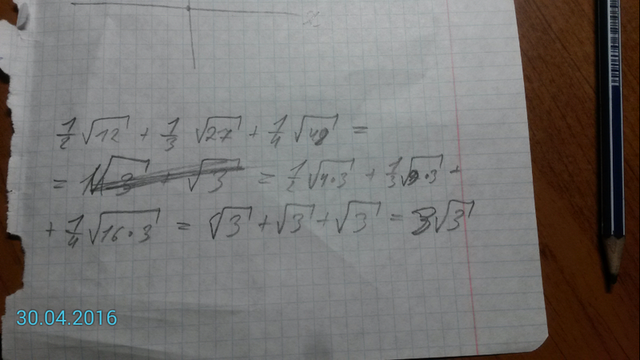 x
1/2 √12 + 1/3 √27 + 1/4 √48 =
= 1/2 √4·3 + 1/3 √9·3 +
+ 1/4 √16·3 = √3 + √3 + √3 = 3√3
30.04.2016